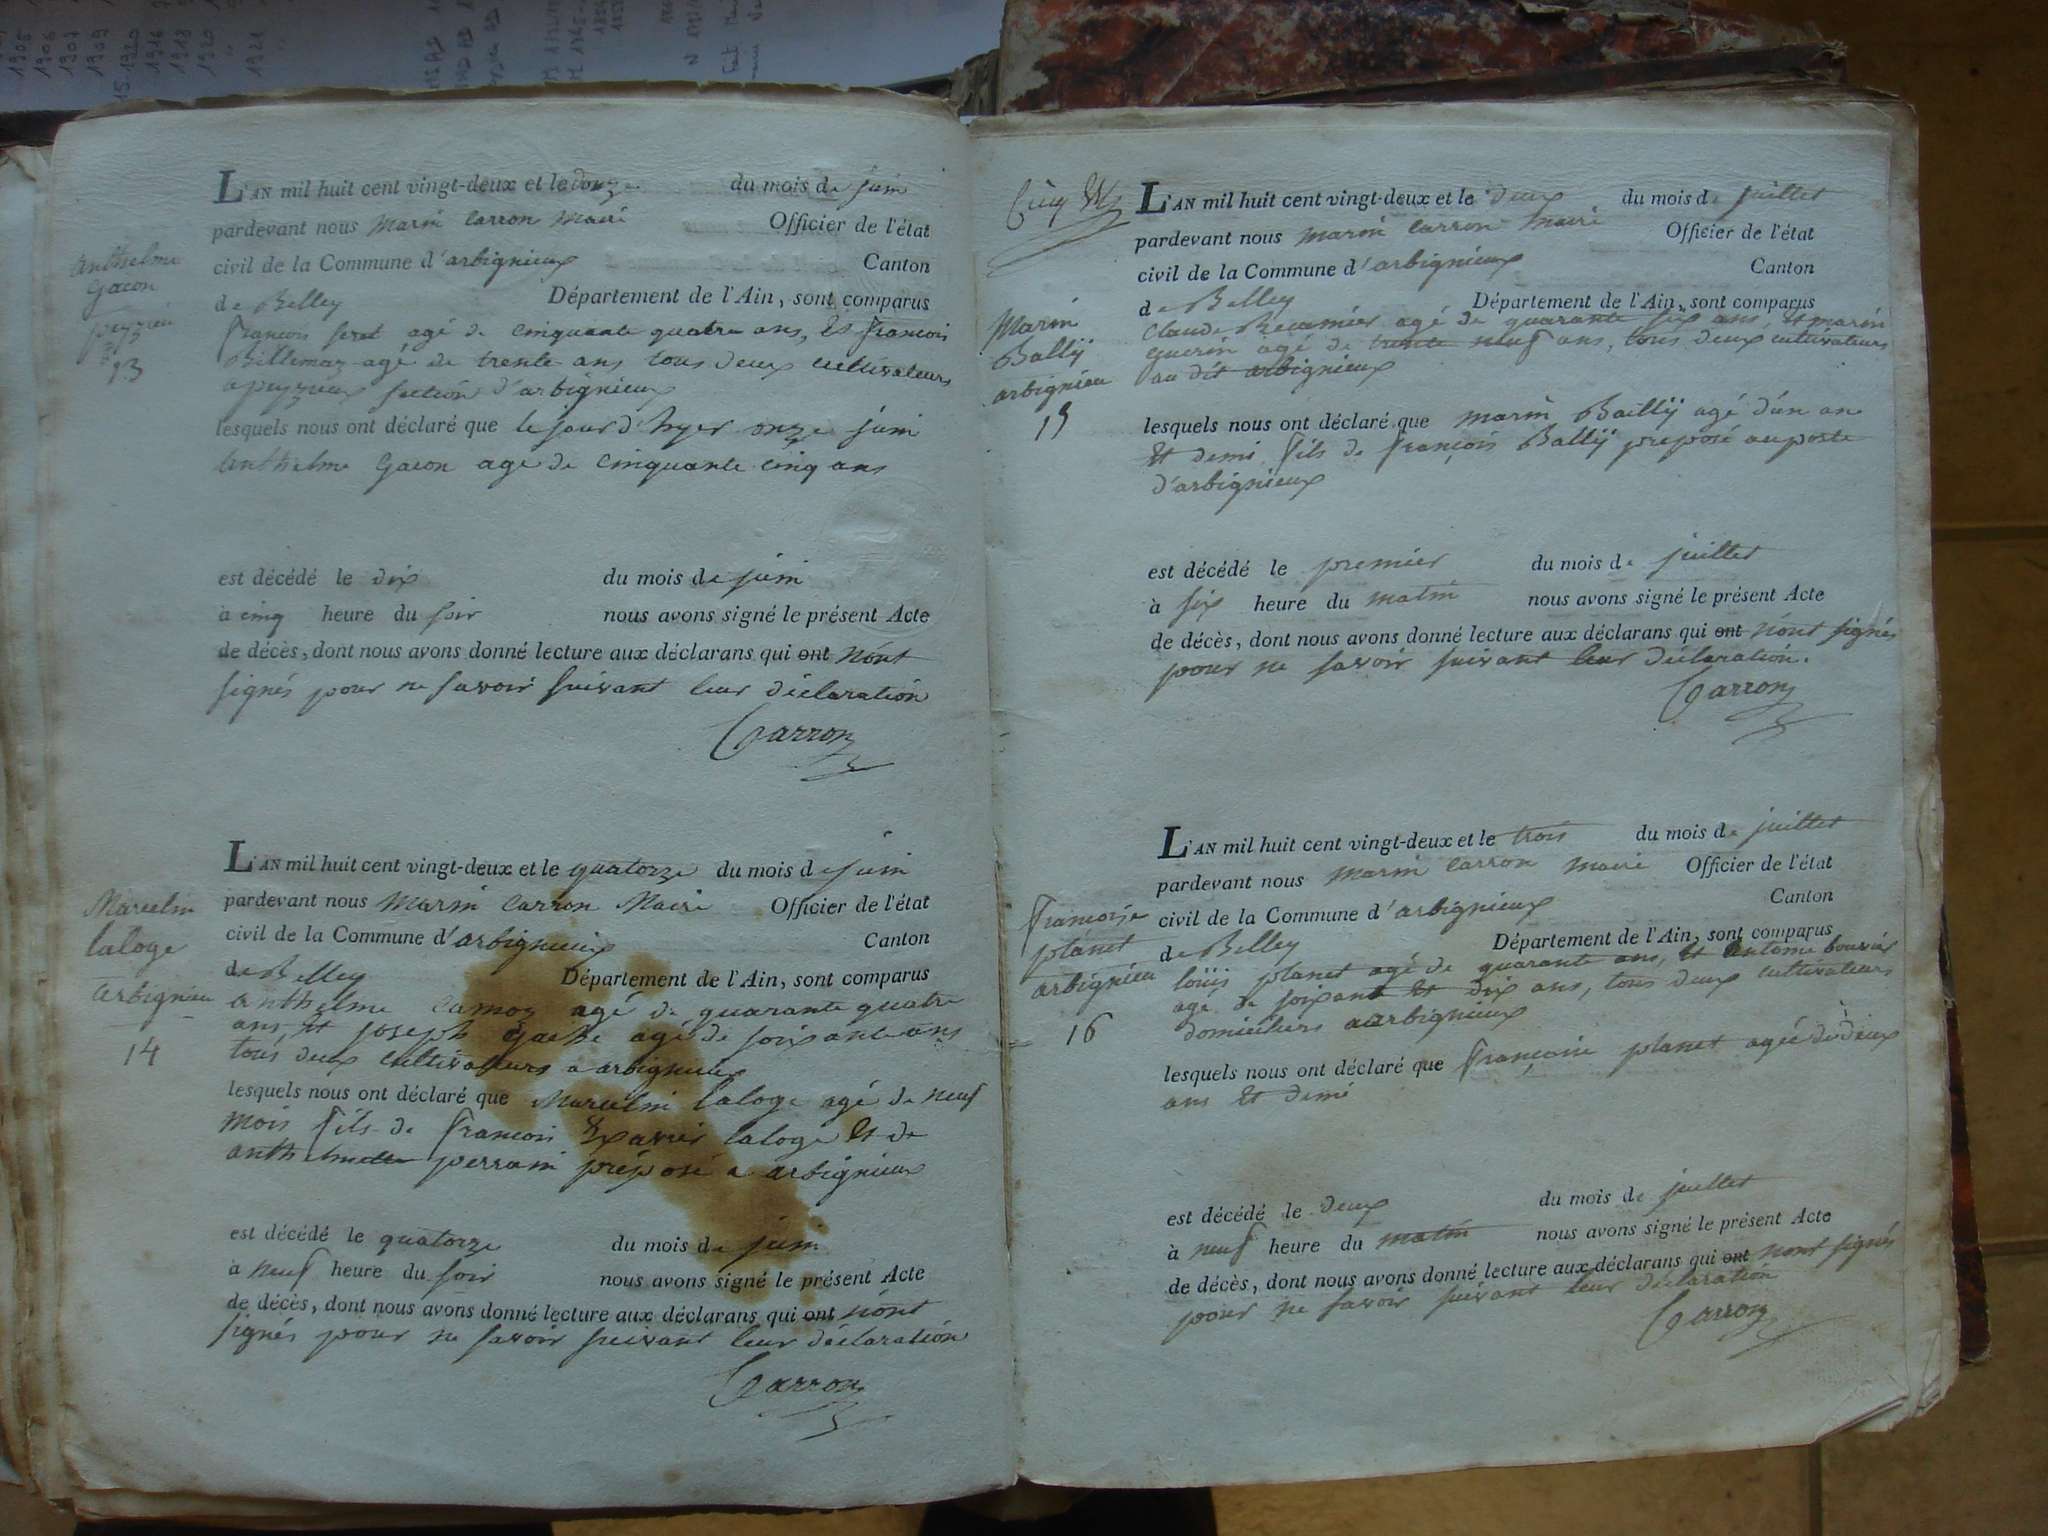 Anthelme
Gacon
peyzieu
13
L'AN mil huit cent vingt-deux et le douze du mois de juin
pardevant nous Marin Carron Maire Officier de l'état
civil de la Commune d'arbignieux Canton
de Belley Département de l'Ain, sont comparus
françois agé de cinquante quatre ans, Et françois
Billemaz agé de trente ans tous deux cultivateurs
a peyzieux section d'arbignieux
lesquels nous ont déclaré que le jour d'hyer onze juin
Anthelme Gacon age de cinquante cinq ans
est décédé le dix du mois de juin
à cinq heure du soir nous avons signé le présent Acte
de décès, dont nous avons donné lecture aux déclarans qui ont n'ont
signés pour ne savoir suivant leur déclaration
Carron
Marcelin
laloge
arbignieu
14
L'AN mil huit cent vingt-deux et le quatorze du mois de juin
pardevant nous Marin Carron Maire Officier de l'état
civil de la Commune d'arbignieux Canton
de Belley Département de l'Ain, sont comparus
anthelme agé de quarante quatre
ans, Et joseph agé de soixante ans
tous deux cultivateurs a arbignieux
lesquels nous ont déclaré que Marcelin laloge agé de neuf
mois fils de françois laloge Et de
perrain préposé a arbignieux
est décédé le quatorze du mois de juin
à neuf heure du soir nous avons signé le présent Acte
de décès, dont nous avons donné lecture aux déclarans qui ont n'ont
signés pour ne savoir suivant leur déclaration
Carron
Marin
Ballÿ
arbignieu
15
L'AN mil huit cent vingt-deux et le deux du mois de juillet
pardevant nous marin Carron maire Officier de l'état
civil de la Commune d'arbignieux Canton
de Belley Département de l'Ain, sont comparus
Claude Recamier agé de quarante six ans, Et marin
guerin agé de trente neuf ans, tous deux cultivateurs
au dit arbignieux
lesquels nous ont déclaré que marin Baillÿ agé d'un an
Et demi fils de françois Ballÿ preposé au poste
d'arbignieux
est décédé le premier du mois de juillet
à six heure du matin nous avons signé le présent Acte
de décès, dont nous avons donné lecture aux déclarans qui ont n'ont signés
pour ne savoir suivant leur déclaration.
Carron
françoise
planet
arbignieu
16
L'AN mil huit cent vingt-deux et le trois du mois de juillet
pardevant nous marin Carron maire Officier de l'état
civil de la Commune d'arbignieux Canton
de Belley Département de l'Ain, sont comparus
loüis planet agé de quarante ans, Et antoine bouvier
agé de soixante Et dix ans, tous deux cultivateurs
domiciliers a arbignieux
lesquels nous ont déclaré que françoise planet agée de deux
ans Et demi
est décédé le deux du mois de juillet
à neuf heure du matin nous avons signé le présent Acte
de décès, dont nous avons donné lecture aux déclarans qui ont n'ont signés
pour ne savoir suivant leur déclaration
Carron